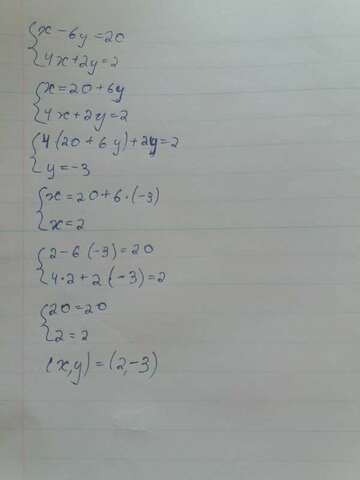 x - 6y = 20
4x + 2y = 2
x = 20 + 6y
4x + 2y = 2
4(20 + 6y) + 2y = 2
y = -3
x = 20 + 6·(-3)
x = 2
2 - 6·(-3) = 20
4·2 + 2·(-3) = 2
20 = 20
2 = 2
(x,y) = (2,-3)